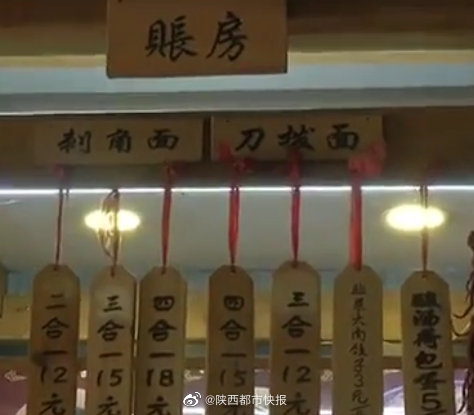 賬房
刹角面
刀拨面
二合一12元
三合一15元
四合一18元
四合一15
三合一12元
大肉 子3元
荷包蛋5
@陕西都市快报